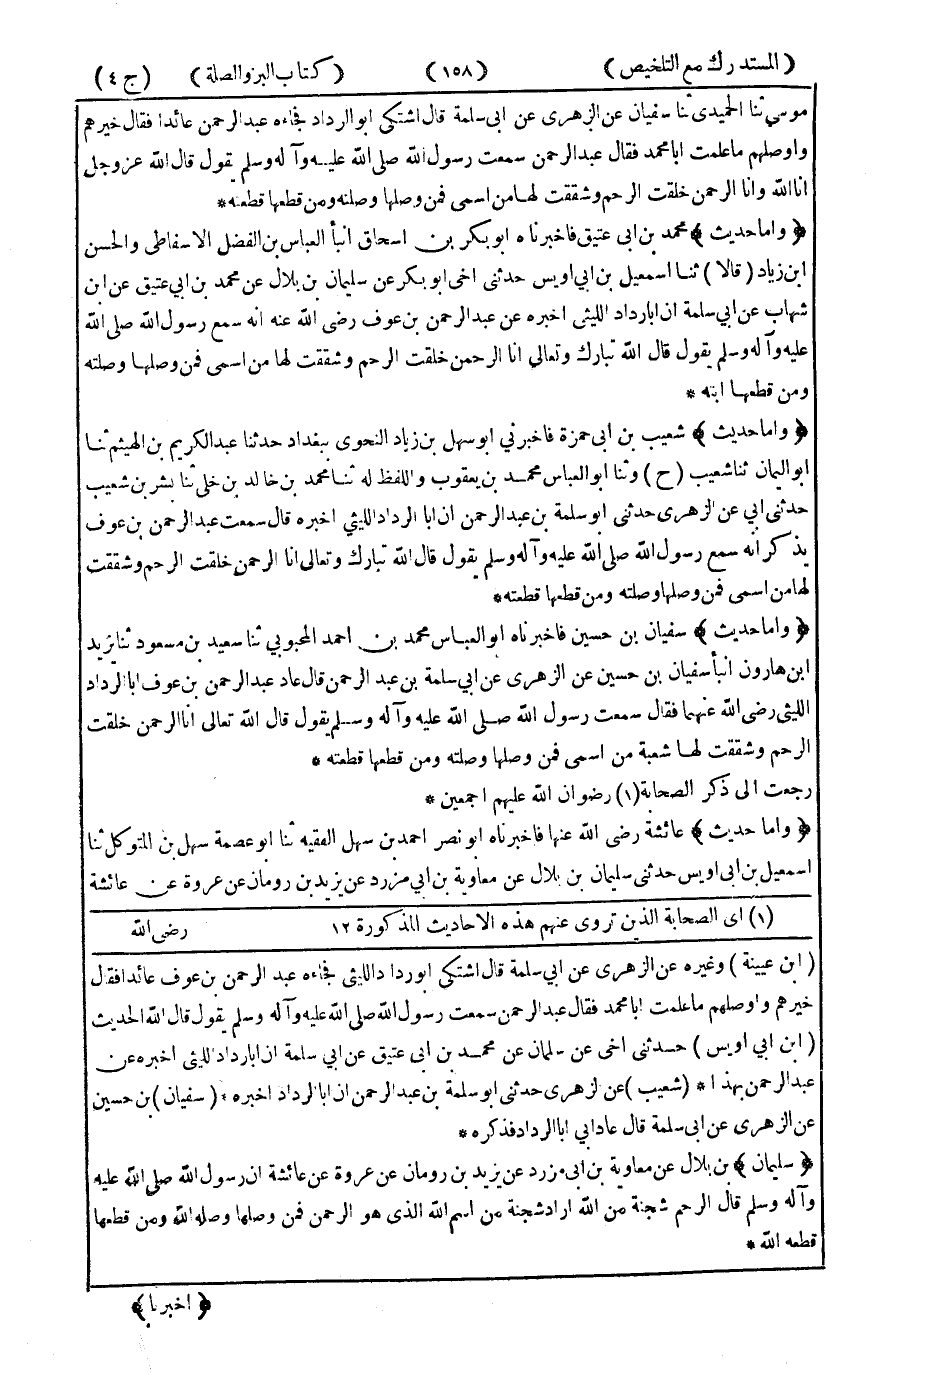 (المستدرك مع التلخيص) (١٥٨) (كتاب البر والصلة) (ج ٤)
موسى ثنا الحميدى ثنا سفيان عن الزهرى عن ابى سلمة قال اشتكى ابو الرداد فجاءه عبدالرحمن عائدا فقال خيرهم
واوصلهم ما علمت ابا محمد فقال عبدالرحمن سمعت رسول الله صلى الله عليه وآله وسلم يقول قال الله عز وجل
انا الله وانا الرحمن خلقت الرحم وشققت لها من اسمى فمن وصلها وصلته ومن قطعها قطعته *
﴿ واما حديث ﴾ محمد بن ابى عتيق فاخبرناه ابو بكر بن اسحاق انبأ العباس بن الفضل الاسفاطى والحسن
ابن زياد (قالا) ثنا اسمعيل بن ابى اويس حدثنى اخى ابو بكر عن سليمان بن بلال عن محمد بن ابي عتيق عن ابن
شهاب عن ابي سلمة ان ابا رداد الليثى اخبره عن عبدالرحمن بن عوف رضى الله عنه انه سمع رسول الله صلى الله
عليه وآله وسلم يقول قال الله تبارك وتعالى انا الرحمن خلقت الرحم وشققت لها من اسمى فمن وصلها وصلته
ومن قطعها ابته *
﴿ واما حديث ﴾ شعيب بن ابى حمزة فاخبرني ابو سهل بن زياد النحوى ببغداد حدثنا عبدالكريم بن الهيثم ثنا
ابو اليمان ثنا شعيب (ح) وثنا ابو العباس محمد بن يعقوب واللفظ له ثنا محمد بن خالد بن خلي ثنا بشر بن شعيب
حدثنى ابي عن الزهرى حدثنى ابو سلمة بن عبدالرحمن ان ابا الرداد الليثى اخبره قال سمعت عبدالرحمن بن عوف
يذكر انه سمع رسول الله صلى الله عليه وآله وسلم يقول قال الله تبارك وتعالى انا الرحمن خلقت الرحم وشققت
لها من اسمى فمن وصلها وصلته ومن قطعها قطعته *
﴿ واما حديث ﴾ سفيان بن حسين فاخبرناه ابو العباس محمد بن احمد المحبوبي ثنا سعيد بن مسعود ثنا يزيد
ابن هارون انبأ سفيان بن حسين عن الزهرى عن ابي سلمة بن عبد الرحمن قال عاد عبدالرحمن بن عوف ابا الرداد
الليثى رضى الله عنهما فقال سمعت رسول الله صلى الله عليه وآله وسلم يقول قال الله تعالى انا الرحمن خلقت
الرحم وشققت لها شعبة من اسمى فمن وصلها وصلته ومن قطعها قطعته *
رجعت الى ذكر الصحابة (١) رضوان الله عليهم اجمعين *
﴿ واما حديث ﴾ عائشة رضى الله عنها فاخبرناه ابو نصر احمد بن سهل الفقيه ثنا ابو عصمة سهل بن المتوكل ثنا
اسمعيل بن ابى اويس حدثنى سليمان بن بلال عن معاوية بن ابي مزرد عن يزيد بن رومان عن عروة عن عائشة
(١) اى الصحابة الذين تروى عنهم هذه الاحاديث المذكورة ١٢ رضى الله
(ابن عيينة) وغيره عن الزهرى عن ابى سلمة قال اشتكى ابو رداد الليثى فجاءه عبد الرحمن بن عوف عائدا فقال
خيرهم واوصلهم ما علمت ابا محمد فقال عبدالرحمن سمعت رسول الله صلى الله عليه وآله وسلم يقول قال الله الحديث
(ابن ابى اويس) حدثنى اخى عن سليمان عن محمد بن ابى عتيق عن ابى سلمة ان ابا رداد الليثى اخبره عن
عبدالرحمن بهذا * (شعيب) عن الزهرى حدثنى ابو سلمة بن عبدالرحمن ان ابا الرداد اخبره * (سفيان) بن حسين
عن الزهرى عن ابى سلمة قال عاد ابي ابا الرداد فذكره *
﴿ سليمان ﴾ بن بلال عن معاوية بن ابى مزرد عن يزيد بن رومان عن عروة عن عائشة ان رسول الله صلى الله عليه
وآله وسلم قال الرحم شجنة من الله اراد شجنة من اسم الله الذى هو الرحمن فمن وصلها وصله الله ومن قطعها
قطعه الله *
﴿ اخبرنا ﴾